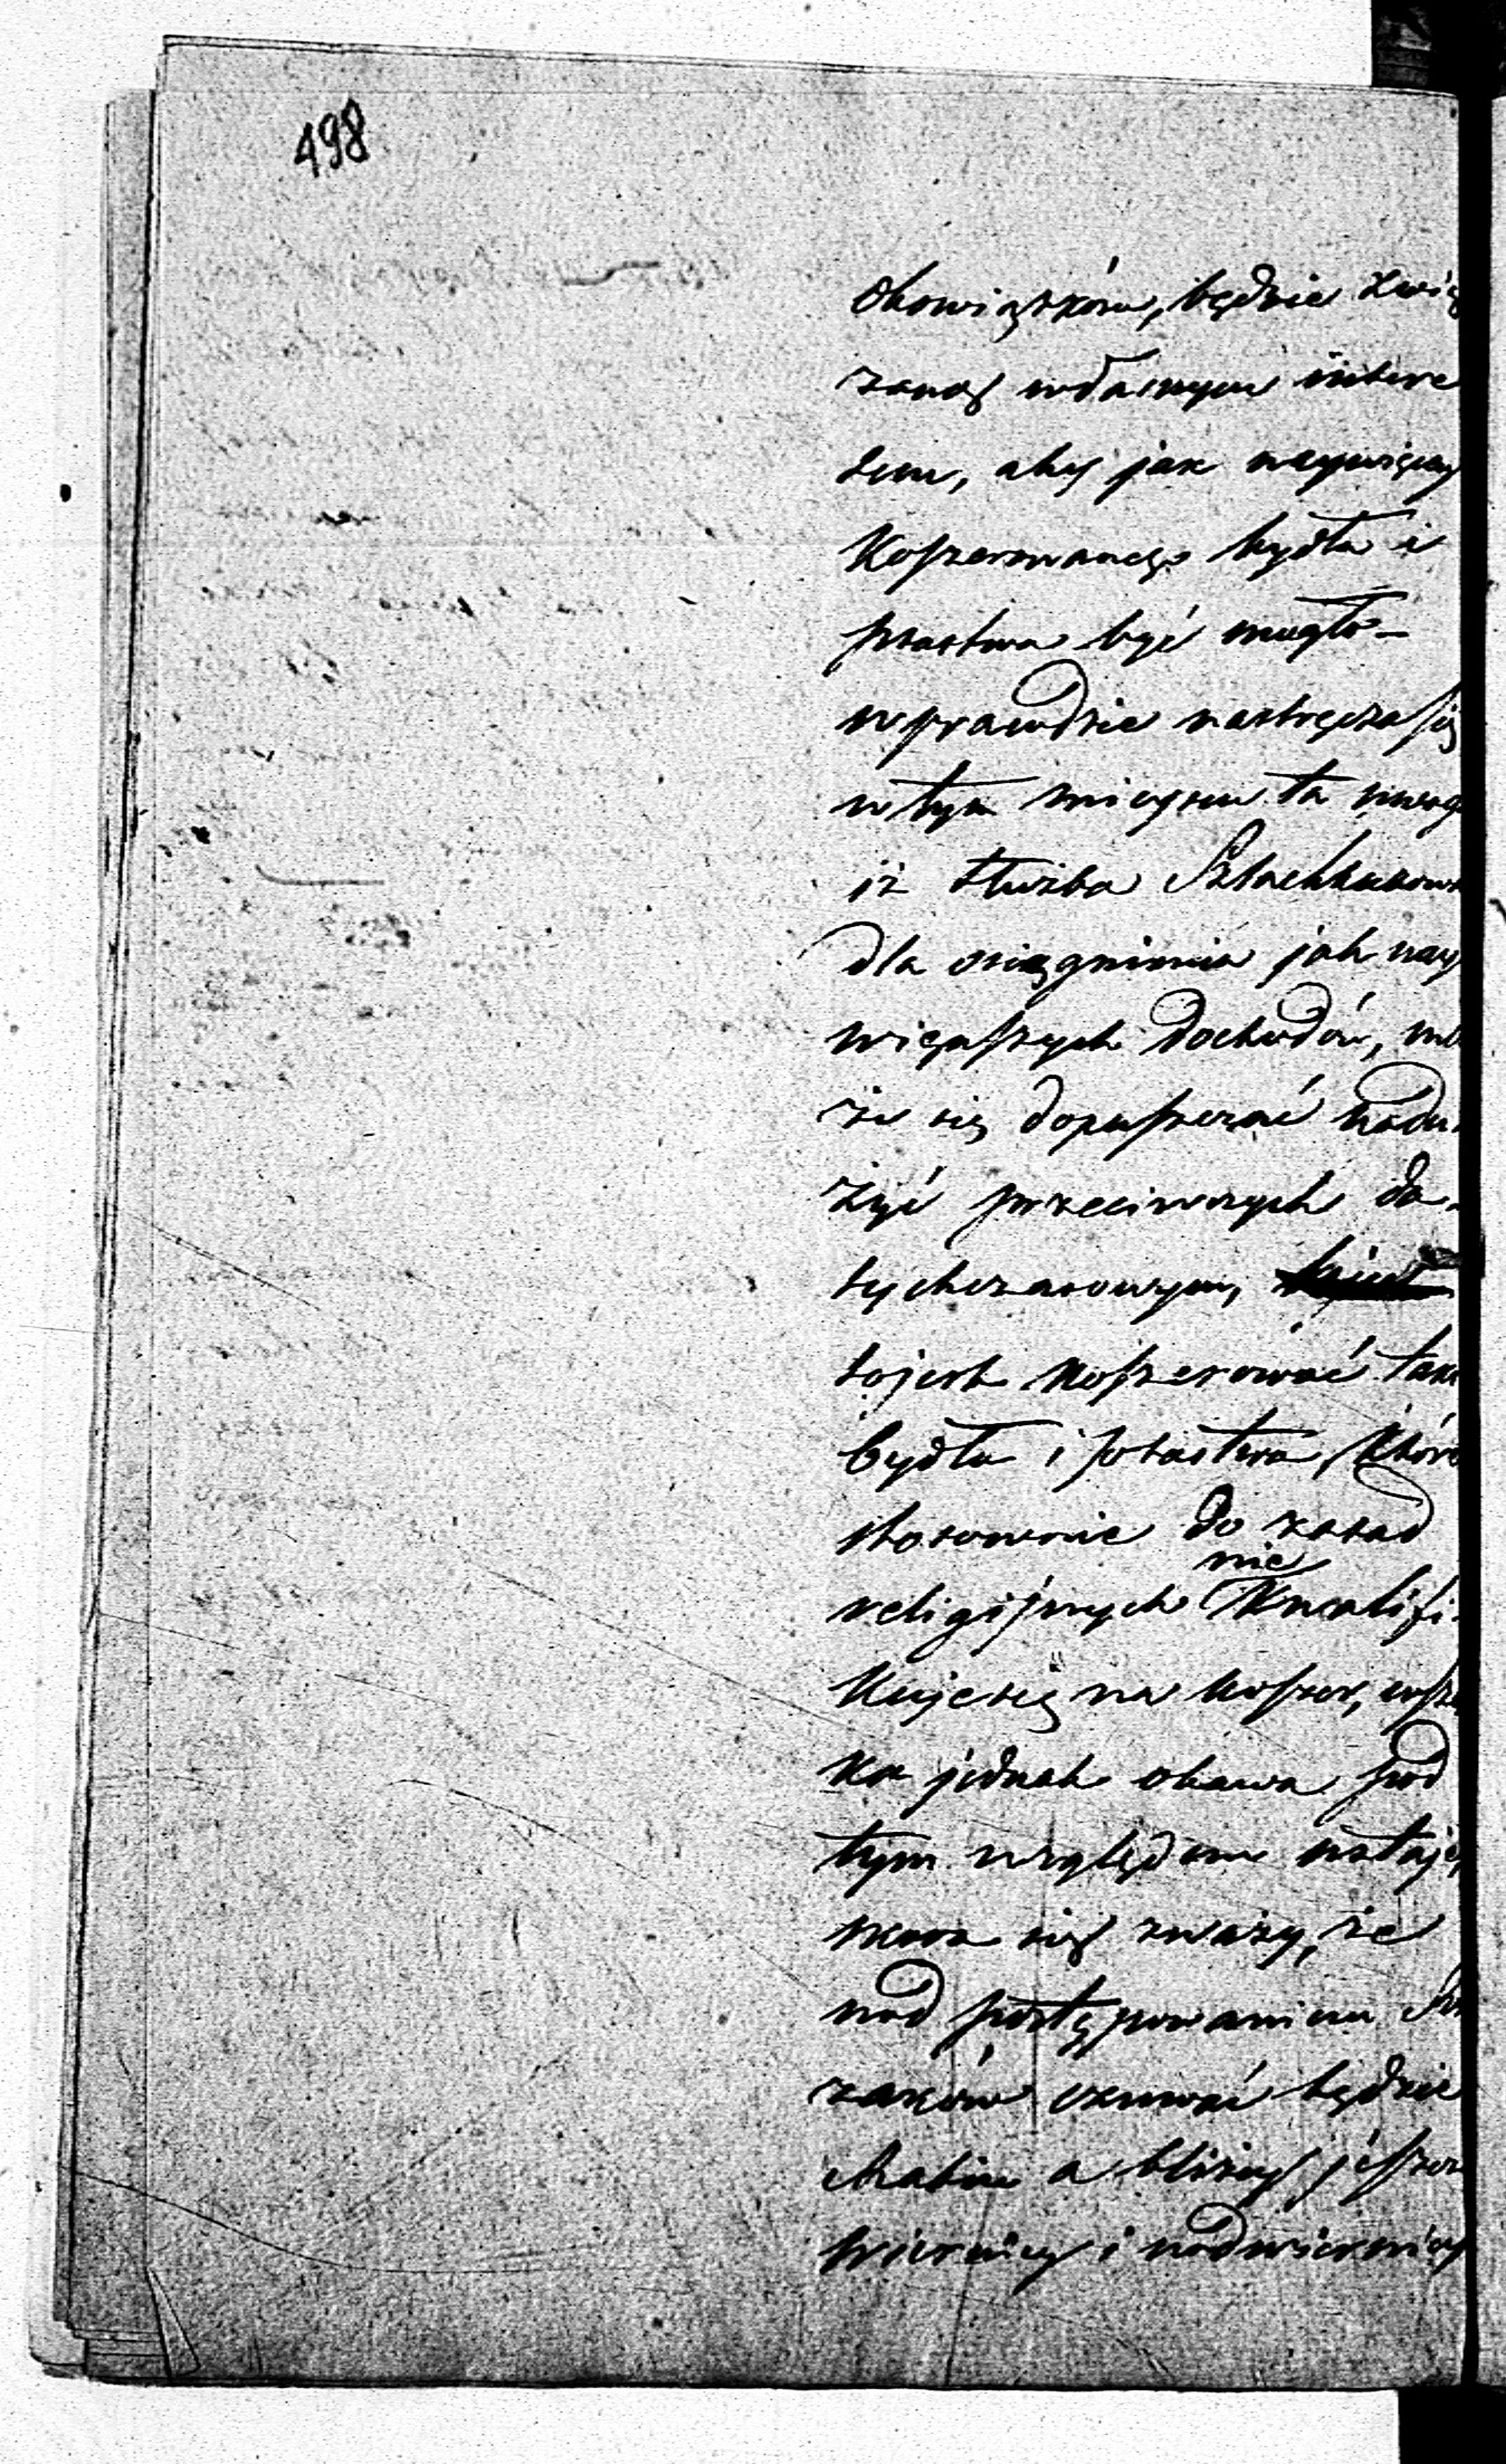 498
obowiązków, będzie zwią
zaną własnym intere
sem, aby jak naywięcey
Koszerowanego bydła i
ptastwa być mogło –
wprawdzie nastręcza się
w tym mieyscu ta uwag
iż służba Szlachtuzowa
dla osiągnienia jak nay
więszych dochodów, mo
że się dopuszczać nadu
żyć przeciwnych do-
tychczasowym,
tojest Koszerować take
bydła i ptastwa, które
stosownie do zasad
nie
religijnych Kwalifi-
kuje się na koszer, wsze
ka jednak obawa pod
tym względem ustaje,
skoro się zważy, że
nad postępowaniem Sz
zaków czuwać będzie
Rabin a bliżey jeszcze
wiernicy i nadwiernicy